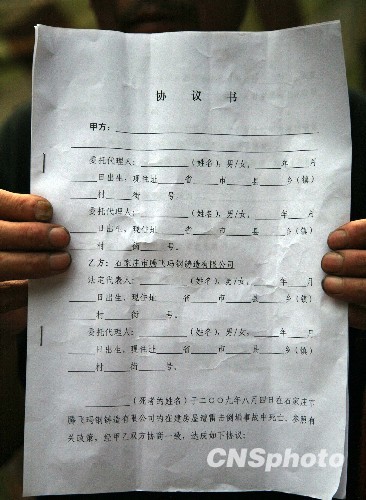 协 议 书
甲方:
委托代理人: (姓名), 男/女, 年 月
日出生, 现住址 省 市 县 乡(镇)
村 街 号。
委托代理人: (姓名), 男/女, 年 月
日出生, 现住址 省 市 县 乡(镇)
村 街 号。
乙方: 石家庄市腾飞玛钢铸造有限公司
法定代表人: (姓名), 男/女, 年 月
日出生, 现住址 省 市 县 乡(镇)
村 街 号。
委托代理人: (姓名), 男/女, 年 月
日出生, 现住址 省 市 县 乡(镇)
村 街 号。
(死者的姓名)于二〇〇九年八月四日在石家庄市
腾飞玛钢铸造有限公司的在建房屋遭雷击倒塌事故中死亡。参照有
关政策, 经甲乙双方协商一致, 达成如下协议:
CNSphoto